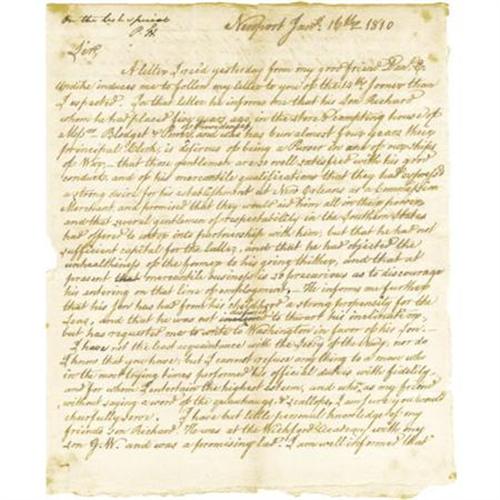 on the last special
P. H.
Newport Jany. 16th 1810
Sir,
A letter I recd yesterday from my good friend Danl. E.
Updike induces me to follow my letter to you of the 12th sooner than
I expected. In that letter he informs me that his Son Richard
whom he had placed five years ago, in the store & compting house of
a Blodget & Power, of Providence, and who has been almost four years their
principal Clerk, is desirous of being a Purser in one of our ships
of War,— that those gentlemen are so well satisfied with his good
conduct, and of his mercantile qualifications that they had expressed
a strong desire for his establishment at New Orleans as a Commission
Merchant and promised that they would aid him all in their power,
and that several gentlemen of respectability in the Southern States
had offered to enter into partnership with him; but that he had not
sufficient capital for the latter, and that he had objected the
unhealthiness of the former to his going thither, and that at
present that mercantile business is so precarious as to discourage
his entering on that line of employment. He informs me further
that his son has had from his childhood a strong propensity for the
Seas, and that he was not disposed to thwart his inclination,
but has requested me to write to Washington in favor of his Son.—
I have not the least acquaintance with the Secy of the Navy, nor do
I know that you have, but I cannot refuse any thing to a man who
in the most trying times performed his official duties with fidelity,
and for whom I entertain the highest esteem, and who, as my friend
without saying a word of the & scallops, I am sure you would
chearfully serve. I have but little personal knowledge of my
friends Son Richard. He was at the Wickford Academy with my
son G.W. and was a promising lad. I am well informed that